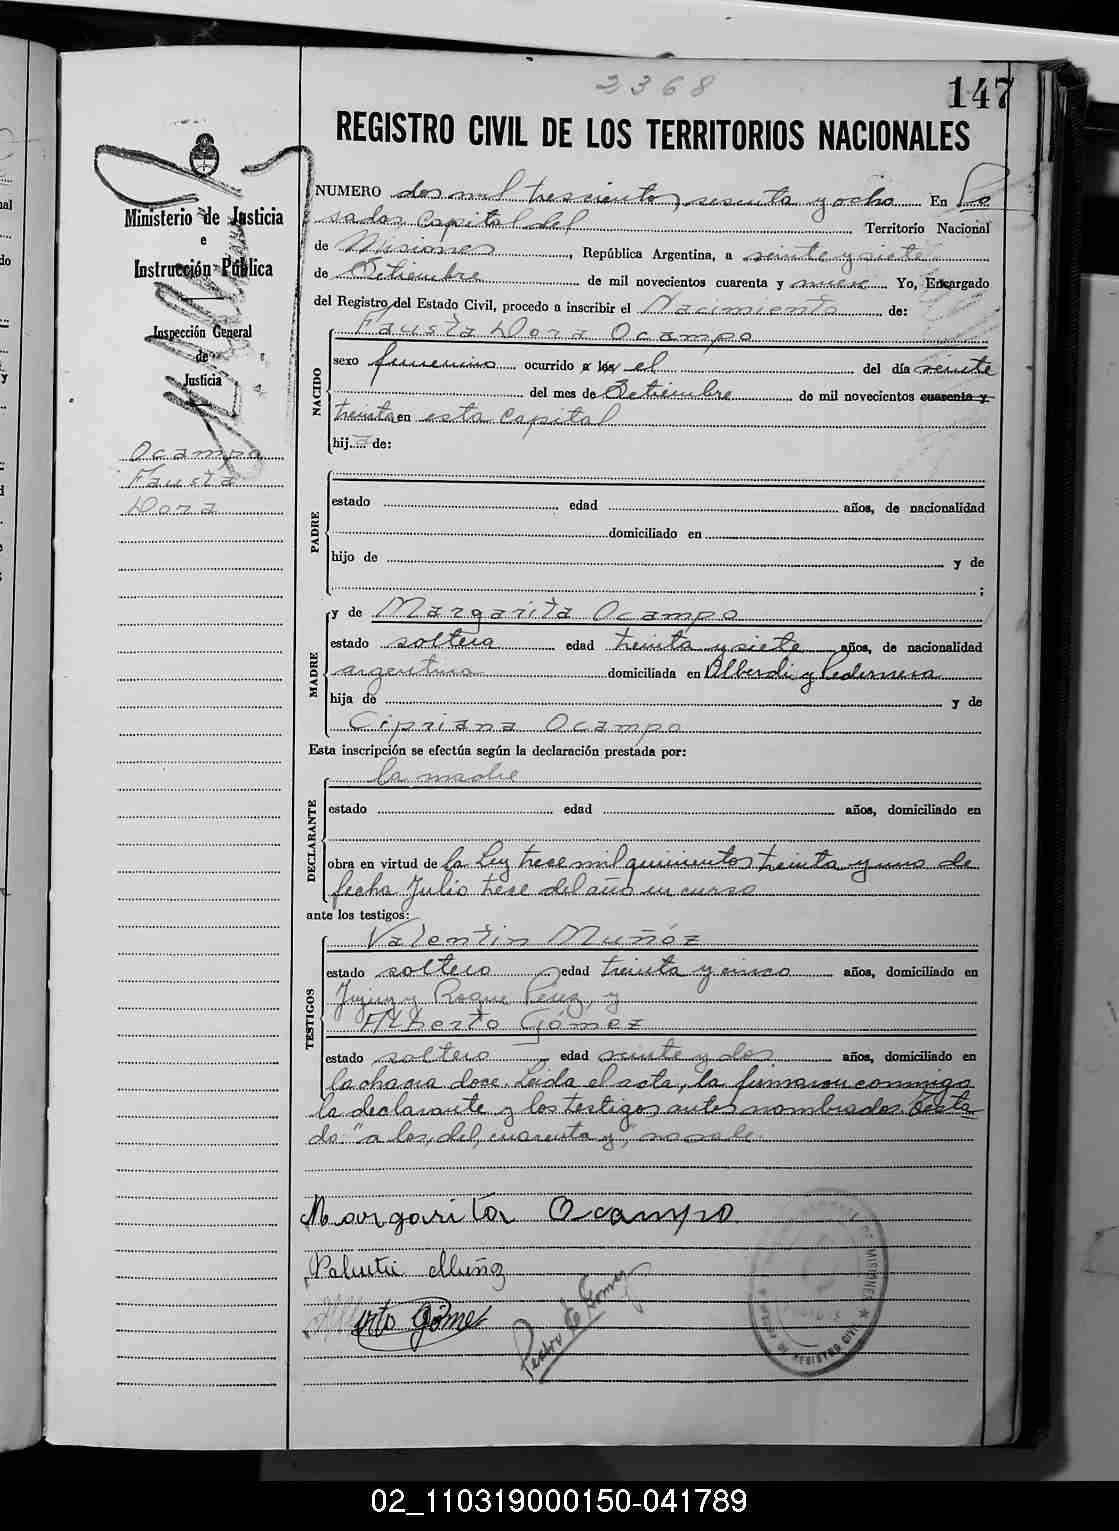 2368
147
REGISTRO CIVIL DE LOS TERRITORIOS NACIONALES
Ministerio de Justicia
e
Instrucción Pública
Inspección General
de
Justicia
Ocampo
Fausta
Dora
NUMERO dos mil trescientos sesenta y ocho En Po
sadas Capital del Territorio Nacional
de Misiones, República Argentina, a veinte y siete
de Setiembre de mil novecientos cuarenta y nueve Yo, Encargado
del Registro del Estado Civil, procedo a inscribir el Nacimiento de:
NACIDO
Fausta Dora Ocampo
sexo femenino ocurrido a las el del día veinte
del mes de Setiembre de mil novecientos cuarenta y
treinta en esta capital
hija de:
PADRE
estado edad años, de nacionalidad
domiciliado en
hijo de y de
;
MADRE
y de Margarita Ocampo
estado soltera edad treinta y siete años, de nacionalidad
argentina domiciliada en Alberdi y Pedernera
hija de y de
Cipriana Ocampo
Esta inscripción se efectúa según la declaración prestada por:
DECLARANTE
la madre
estado edad años, domiciliado en
obra en virtud de la Ley trece mil quinientos treinta y uno de
fecha Julio trece del año en curso
ante los testigos:
TESTIGOS
Valentin Muñóz
estado soltero edad treinta y cinco años, domiciliado en
Jujuy y Roque Pérez, y
Alberto Gómez
estado soltero edad veinte y dos años, domiciliado en
la chacra doce. Leida el acta, la firmaron conmigo
la declarante y los testigos antes nombrados. Testa
do: "a las, del, cuarenta y," no vale.
Margarita Ocampo
Valentin Muñoz
erto Gómez
Pedro E Gomez
DE MISIONES
DE REGISTRO CIVIL
02_110319000150-041789